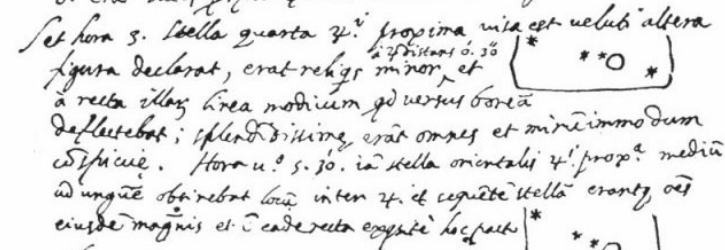 Sed hora 3. stella quarta ♃.i proxima visa est veluti altera
à ♃ distans 0. 30
figura declarat, erat reliqs minor, et
à recta illarũ linea modicum qd versus boreã
deflectebat; splendidissime erãt omnes et mirũ immodum
cõspicue. Hora v.o 5. 30. iã stella orientalis ♃.i prop.a mediũ
ad unguẽ obtinebat locũ inter ♃. et sequẽte stellã erantq oẽs
eiusdẽ magnis et ĩ eade recta exqsite hoc pacto